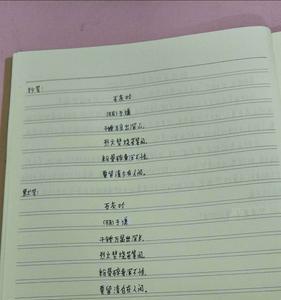 石灰吟
(明)于谦
千锤万凿出深山,
烈火焚烧若等闲。
粉骨碎身浑不怕,
要留清白在人间。
石灰吟
(明)于谦
千锤万凿出深山,
烈火焚烧若等闲。
粉骨碎身浑不怕,
要留清白在人间。